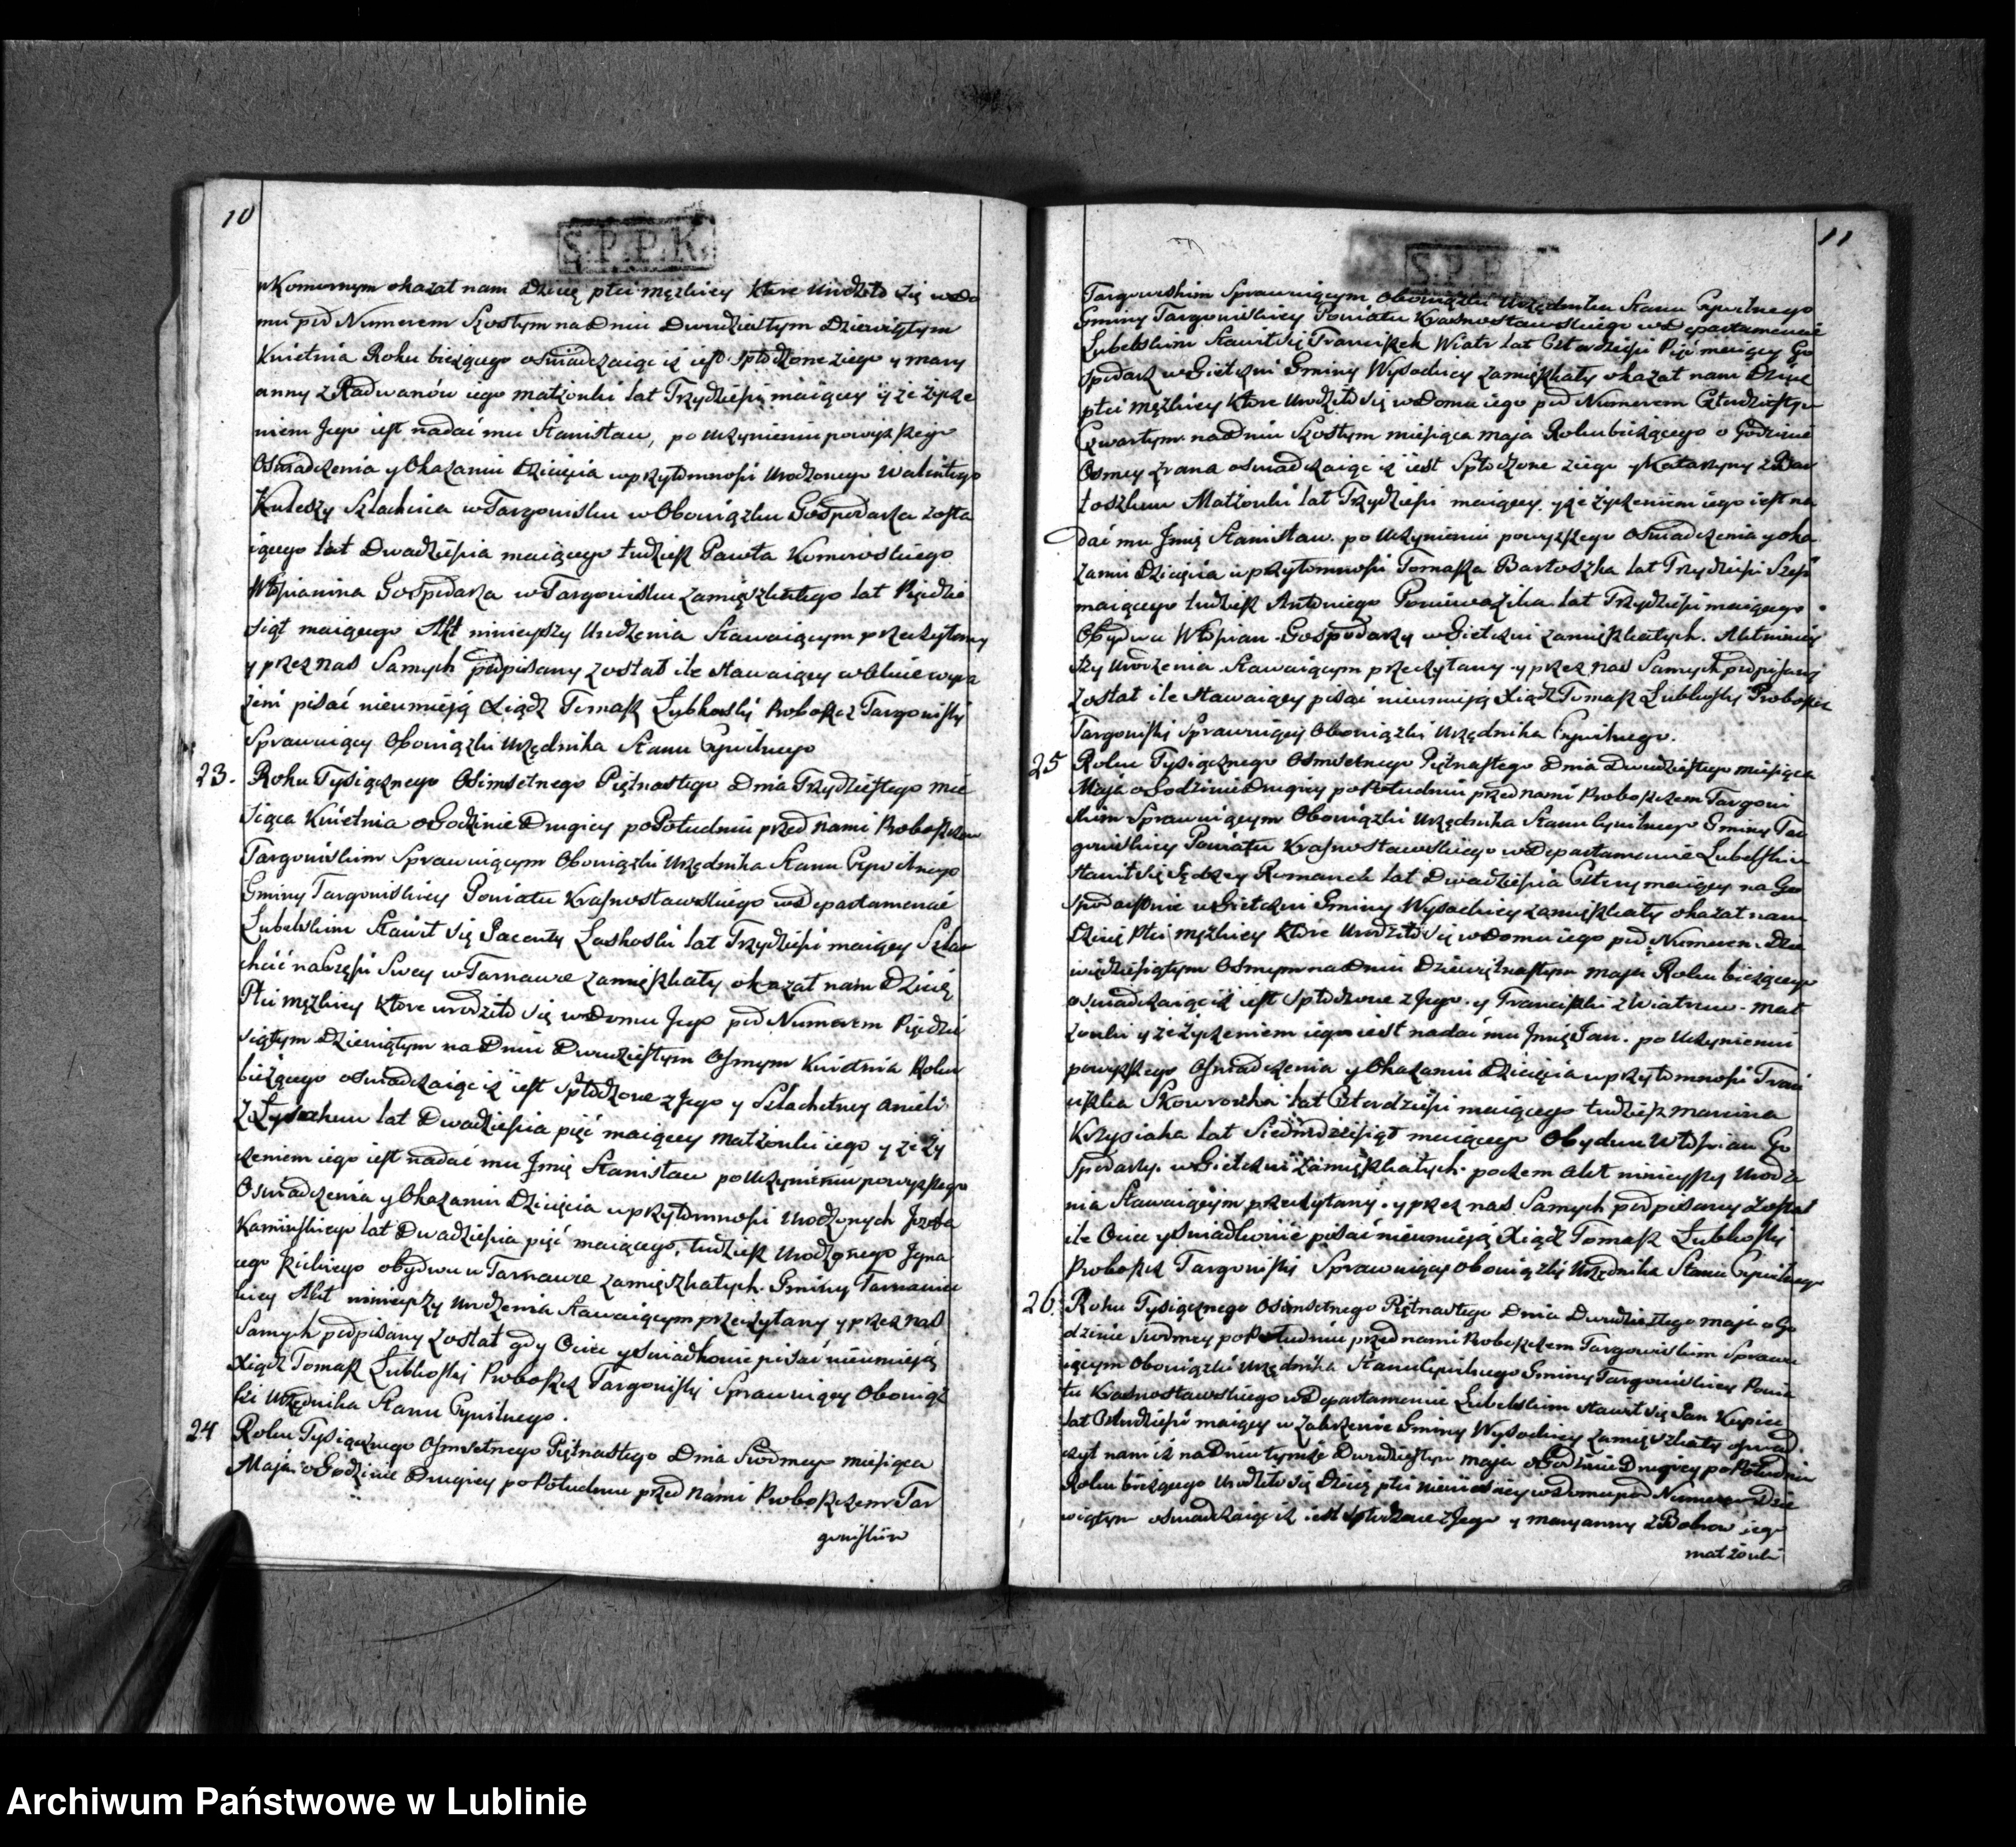 10
S.P.P.K.
w Komornym okazał nam Dziecię płci męzkiey które urodziło się w do
mu pod Numerem Szostym na Dniu Dwudziestym Dziewiątym
Kwietnia Roku bieżącego oświadczaiąc iż iest spłodzone z iego y mary
anny z Radwanów iego małżonki lat Trzydzieści maiącey y że życze
niem Jego iest nadać mu Stanisław, po uczynieniu powyższego
Oświadczenia y Okazaniu dziecięcia w przytomności Urodzonego Walentego
Kuleszy Szlachcica w Targowisku w Obowiązku Gospodarza zosta
iącego lat Dwadzieścia maiącego tudzież Pawła Komorowskiego
Włościanina Gospodarza w Targowisku zamięszkałego lat Pięćdzie
siąt maiącego Akt ninieyszy Urodzenia Stawaiącym przeczytany
y przez nas Samych podpisany został ile stawaiący w Akcie wyra
żeni pisać nieumieią Xiądz Tomasz Lubkoski Proboszcz Targowiski
Sprawuiący Obowiązki Urzędnika Stanu Cywilnego
23. Roku Tysiącznego Osimsetnego Piętnastego Dnia Trzydziestego mie
siąca Kwietnia o Godzinie Drugiey po Południu przed Nami Proboszczem
Targowiskim Sprawuiącym Obowiązki Urzędnika Stanu Cywilnego
Gminy Targowiskiey Powiatu Krasnostawskiego w Departamencie
Lubelskim Stawił się Jacenty Laskoski lat Trzydzieści maiący Szla
chcic na Części Swey w Tarnawce zamięszkały okazał nam Dziecię
Płci męzkiey które urodziło się w Domu Jego pod Numerem Pięćdzie
siątym Dziewiątym na Dniu Dwudziestym Osmym Kwietnia Roku
bieżącego oświadczaiąc iż iest Spłodzone z Jego y Szlachetney Anieli
z lat Dwadzieścia pięć maiącey małżonki iego y że ży
czeniem iego iest nadać mu Jmię Stanisław po Uczynieniu powyższego
Oświadczenia y Okazaniu Dziecięcia w przytomności Urodzonych Jozefa
Kaminskiego lat Dwadzieścia pięć maiącego, tudzież Urodzonego Jgna
cego obydwu w Tarnawce zamięszkałych Gminy Tarnawie
ckiey Akt ninieyszy Urodzenia Stawaiącym przeczytany y przez nas
Samych podpisany został gdy Ociec y świadkowie pisać nieumieią
Xiądz Tomasz Lubkoski Proboszcz Targowiski Sprawuiący Obowiąz
ki Urzędnika Stanu Cywilnego.
24 Roku Tysiącznego Osmsetnego Piętnastego Dnia Siodmego miesiąca
Maja o Godzinie Drugiey po Południu przed nami Proboszczem Tar
gowiskim
11
S.P.P.K.
Targowiskim Sprawuiącym Obowiązki Urzędnika Stanu Cywilnego
Gminy Targowiskiey Powiatu Krasnostawskiego w Departamencie
Lubelskim Stawił się Franciszek Wiatr lat Czterdzieści Pięć maiący Go
spodarz w Giełczwi Gminy Wysockiey zamięszkały okazał nam Dziecię
płci męzkiey które urodziło się w Domu iego pod Numerem Czterdziestym
Czwartym na Dniu Szostym miesiąca maja Roku bieżącego o Godzinie
Osmey z rana oświadczaiąc iż iest Spłodzone z iego y Katarzyny z Bar
toszków Małżonki lat Trzydzieści maiącey, y że życzeniem iego iest na
dać mu Jmię Stanisław. po Uczynieniu powyższego oświadczenia y oka
zaniu Dziecięcia w przytomności Tomasza Bartoszka lat Trzydzieści Sześć
maiącego tudzież Antoniego Poniewozika lat Trzydzieści maiącego
Obydwu Włościan Gospodarzy w Giełczwi zamięszkałych. Akt niniey
szy Urodzenia Stawaiącym przeczytany y przez nas Samych podpisany
został ile stawaiący pisać nieumieią Xiądz Tomasz Lubkoski Proboszcz
Targowiski Sprawuiący Obowiązki Urzędnika Cywilnego.
25 Roku Tysiącznego Osmsetnego Piętnastego Dnia Dwudziestego miesiąca
Maja o Godzinie Drugiey po Południu przed nami Proboszczem Targowi
skim Sprawuiącym Obowiązki Urzędnika Stanu Cywilnego Gminy Tar
gowiskiey Powiatu Krasnostawskiego w Departamencie Lubelskim
Stawił się Romanek lat Dwadzieścia Cztery maiący na Go
spodarstwie w Giełczwi Gminy Wysockiey zamięszkały okazał nam
Dziecię Płci męzkiey które Urodziło się w Domu iego pod Numerem Dzie
więćdziesiątym Osmym na Dniu Dziewiętnastym maja Roku bieżącego
oświadczaiąc iż iest Spłodzone z Jego y Franciszki z Wiatrów mał
żonki y że życzeniem iego iest nadać mu Jmię Jan. po Uczynieniu
powyższego Oświadczenia y Okazaniu Dziecięcia w przytomności Fran
ciszka Skowronka lat Czterdzieści maiącego tudzież marcina
Krzysiaka lat Siedmdziesiąt maiącego Obydwu Włościan Go
spodarzy w Giełczwi zamięszkałych. poczem Akt ninieyszy Urodze
nia Stawaiącym przeczytany y przez nas Samych podpisany został
ile Ociec y Świadkowie pisać nieumieią Xiądz Tomasz Lubkoski
Proboszcz Targowiski Sprawuiący Obowiązki Urzędnika Stanu Cywilnego
26. Roku Tysiącznego Osimsetnego Piętnastego Dnia Dwudziestego maja o Go
dzinie Siodmey po Południu przed nami Proboszczem Targowiskim Sprawu
iącym Obowiązki Urzędnika Stanu Cywilnego Gminy Targowiskiey Powia
tu Krasnostawskiego w Departamencie Lubelskim stawił się Jan Kupiec
lat Czterdzieści maiący w Gminy Wysockiey zamięszkały oświad
czył nam iż na Dniu tymże Dwudziestym maja o Godzinie Drugiey po Południu
Roku bieżącego Urodziło się Dziecię płci niewieściey w Domu pod Numerem Dzie
wiątym oświadczaiąc iż iest Spłodzone z Jego y maryanny z iego
małżonki
Archiwum Państwowe w Lublinie